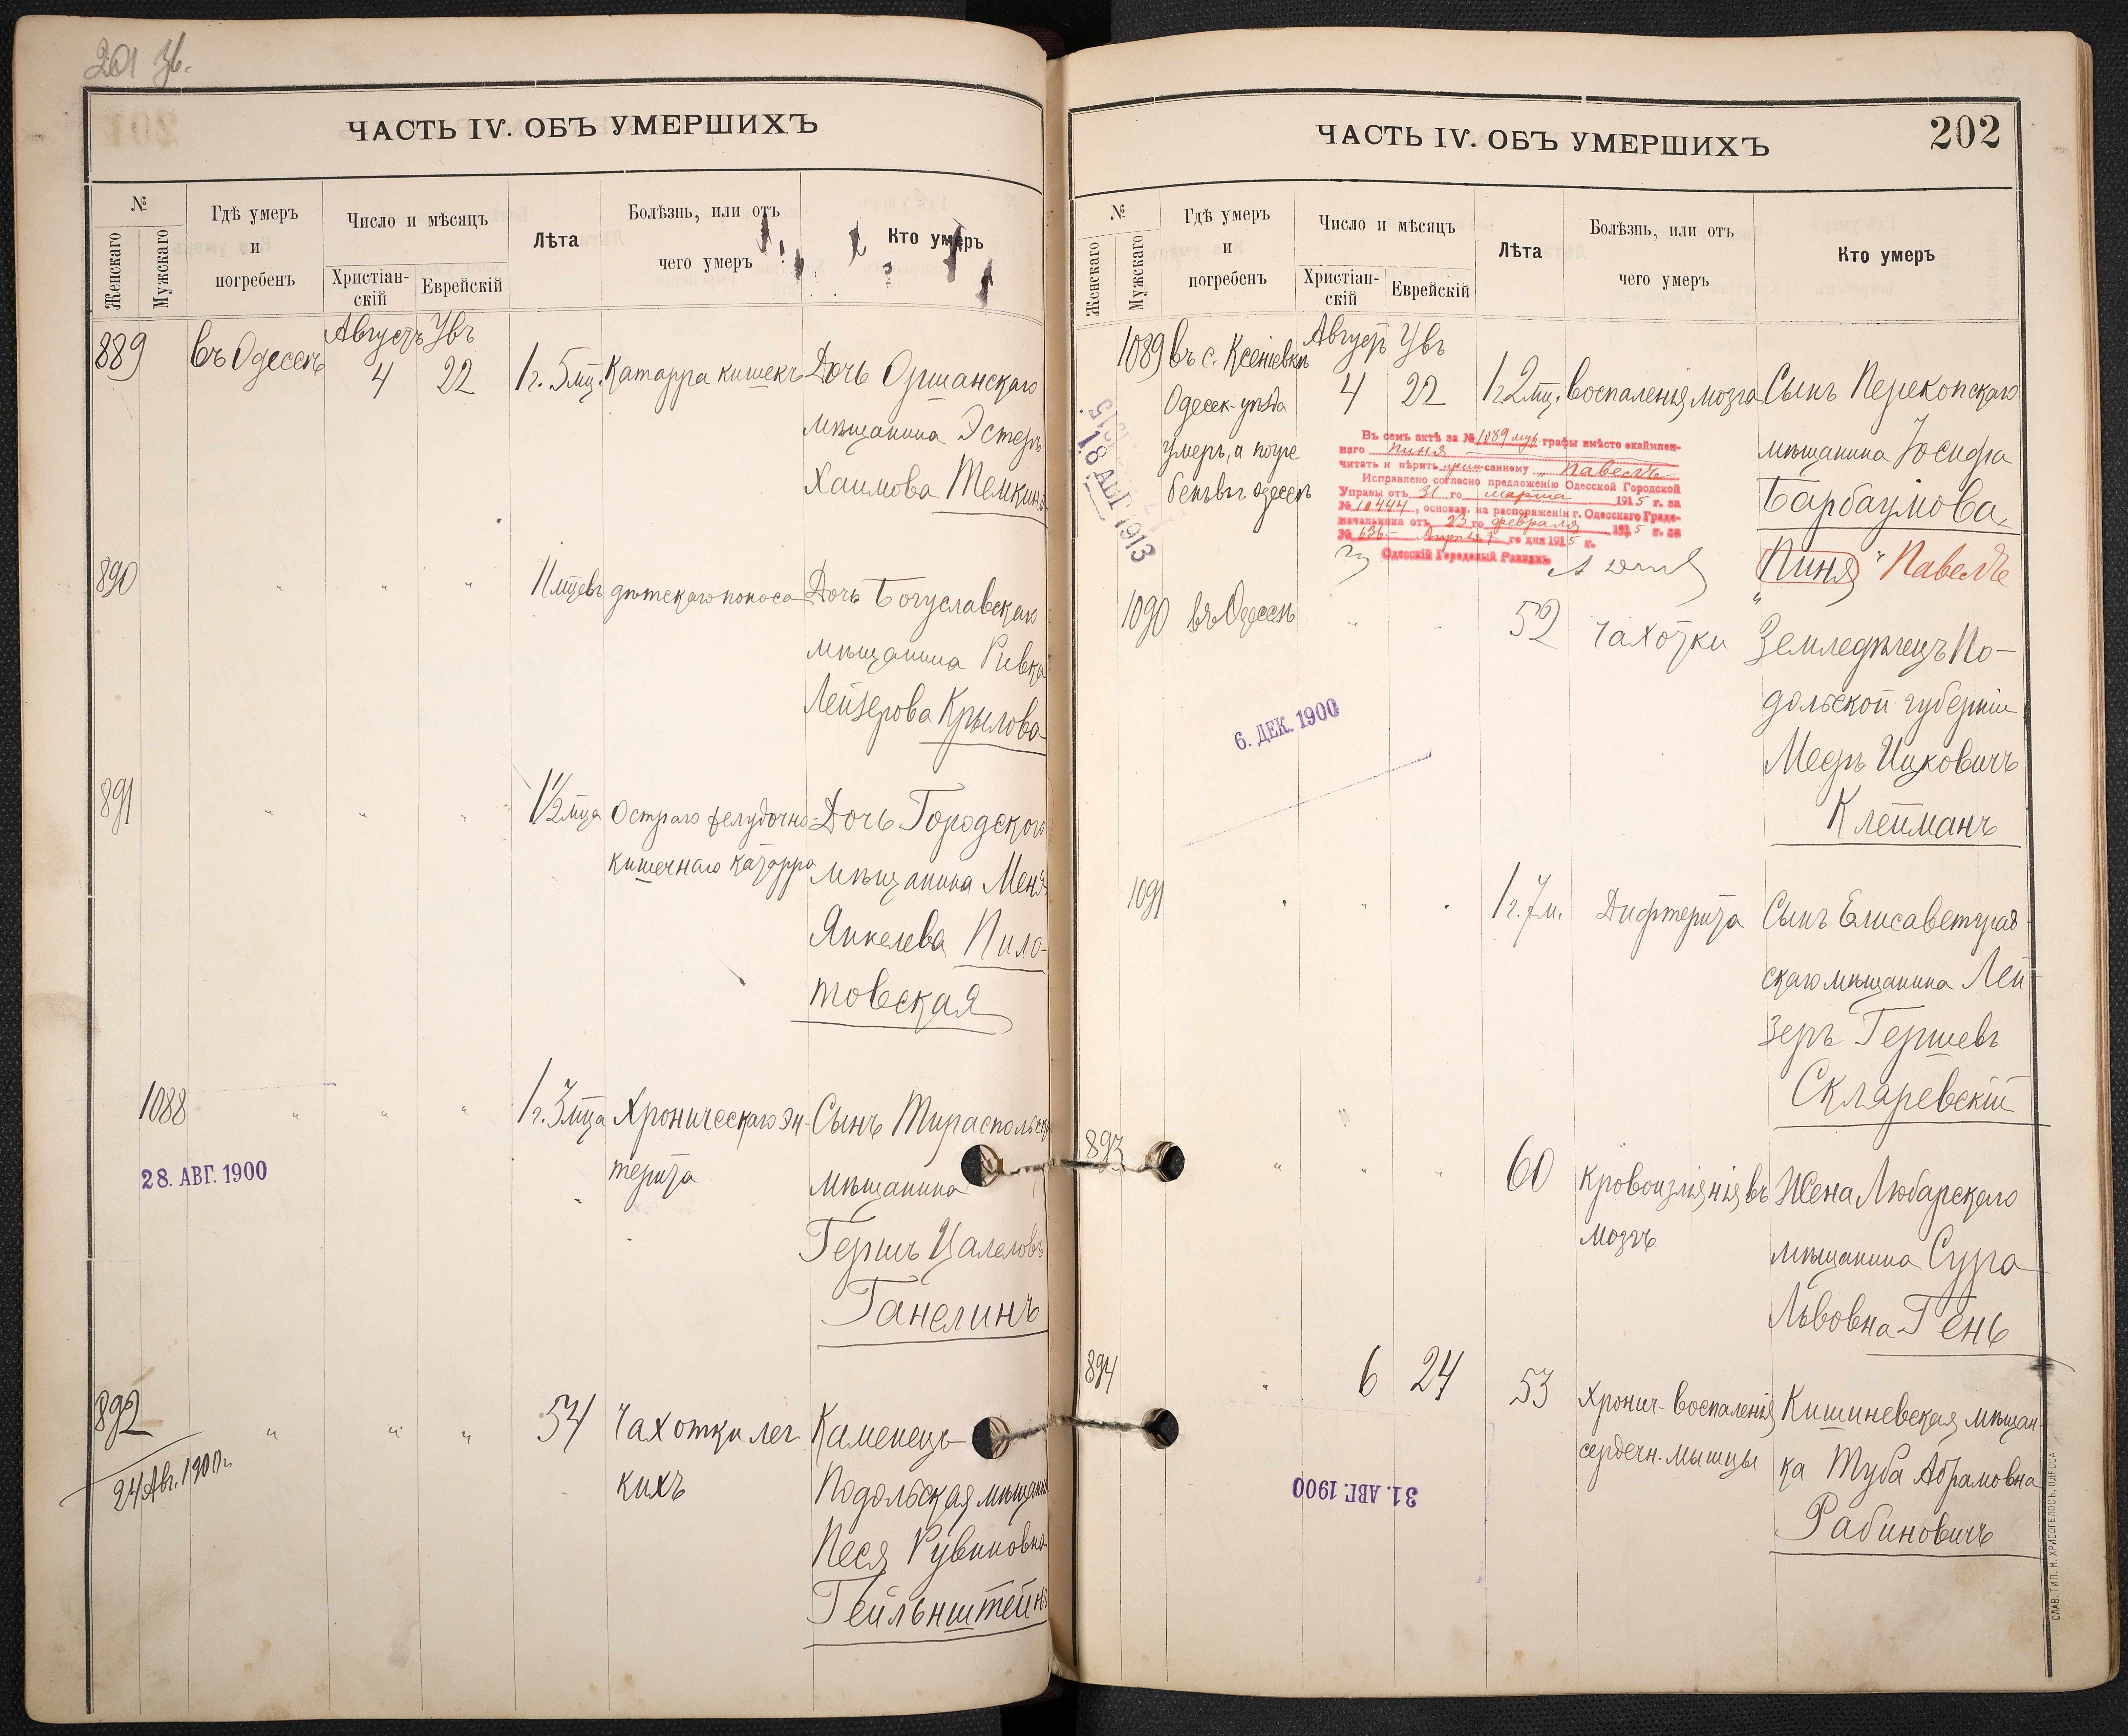 201 об.
ЧАСТЬ IV. ОБЪ УМЕРШИХЪ
№
Женскаго
Мужскаго
Гдѣ умеръ
и
погребенъ
Число и мѣсяцъ
Христіан-
скій
Еврейскій
Лѣта
Болѣзнь, или отъ
чего умеръ
Кто умеръ
889 въ Одессѣ Августъ Увъ
4 22 1 г. 5 мц. Катарра кишекъ Дочь Оршанскаго
мѣщанина Эстеръ
Хаимова Темкина
890 " " " 11 мцевъ дѣтскаго поноса Дочь Богуславскаго
мѣщанина Ривка
Лейзерова Крылова
891 " " " 1½ мца Остраго желудочно- Дочь Городскаго
кишечнаго катарра мѣщанина Меня
Янкелева Пило-
товская
1088 " " " 1 г. 3 мца Хроническаго эн- Сынъ Тираспольск
терита мѣщанина
28. АВГ. 1900
Гершъ Цалеловъ
Ганелинъ
892 " " " 54 Чахотки лег Каменецъ-
24 Авг. 1900 г. кихъ Подольская мѣщанка
Песя Рувиновна
Гейльнштейнъ
ЧАСТЬ IV. ОБЪ УМЕРШИХЪ
202
№
Женскаго
Мужскаго
Гдѣ умеръ
и
погребенъ
Число и мѣсяцъ
Христіан-
скій
Еврейскій
Лѣта
Болѣзнь, или отъ
чего умеръ
Кто умеръ
1089 въ с. Ксеніевкѣ Августъ Увъ
Одесск. уѣзда 4 22 1 г. 2 мц. воспаленія мозга Сынъ Перекопскаго
умеръ, а погре мѣщанина Іосифа
бенъ въ г. Одессѣ Барбаумова
18 АВГ 1913
Въ семъ актѣ за № 1089 муж графы вмѣсто окаймлен-
наго Пиня
читать и вѣрить приписанному "Павелъ
Исправлено согласно предложенію Одесской Городской
Управы отъ 31 го марта 1915 г. за
№ 10444, основан. на распоряженіи г. Одесскаго Градо-
начальника отъ 23 го февраля 1915 г. за
№ 636 Апрѣля 7 го дня 1915 г.
Одесскій Городовый Раввинъ
Пиня "Павелъ
1090 въ Одессѣ " " 52 Чахотки Земледѣлецъ По-
дольской губерніи
6. ДЕК. 1900
Мееръ Ицковичъ
Клейманъ
1091 " " " 1 г. 7 м. Дифтерита Сынъ Елисаветград-
скаго мѣщанина Лей-
зеръ Гершевъ
Скляревскій
893 " " " 60 Кровоизліянія въ Жена Любарскаго
мозгъ мѣщанина Сура
Львовна Гень
894 " 6 24 53 Хронич. воспаленія Кишиневская мѣщан-
сердечн. мышцы ка Туба Абрамовна
31. АВГ. 1900
Рабиновичъ
СЛАВ. ТИП. Н. ХРИСОГЕЛОСЪ, ОДЕССА